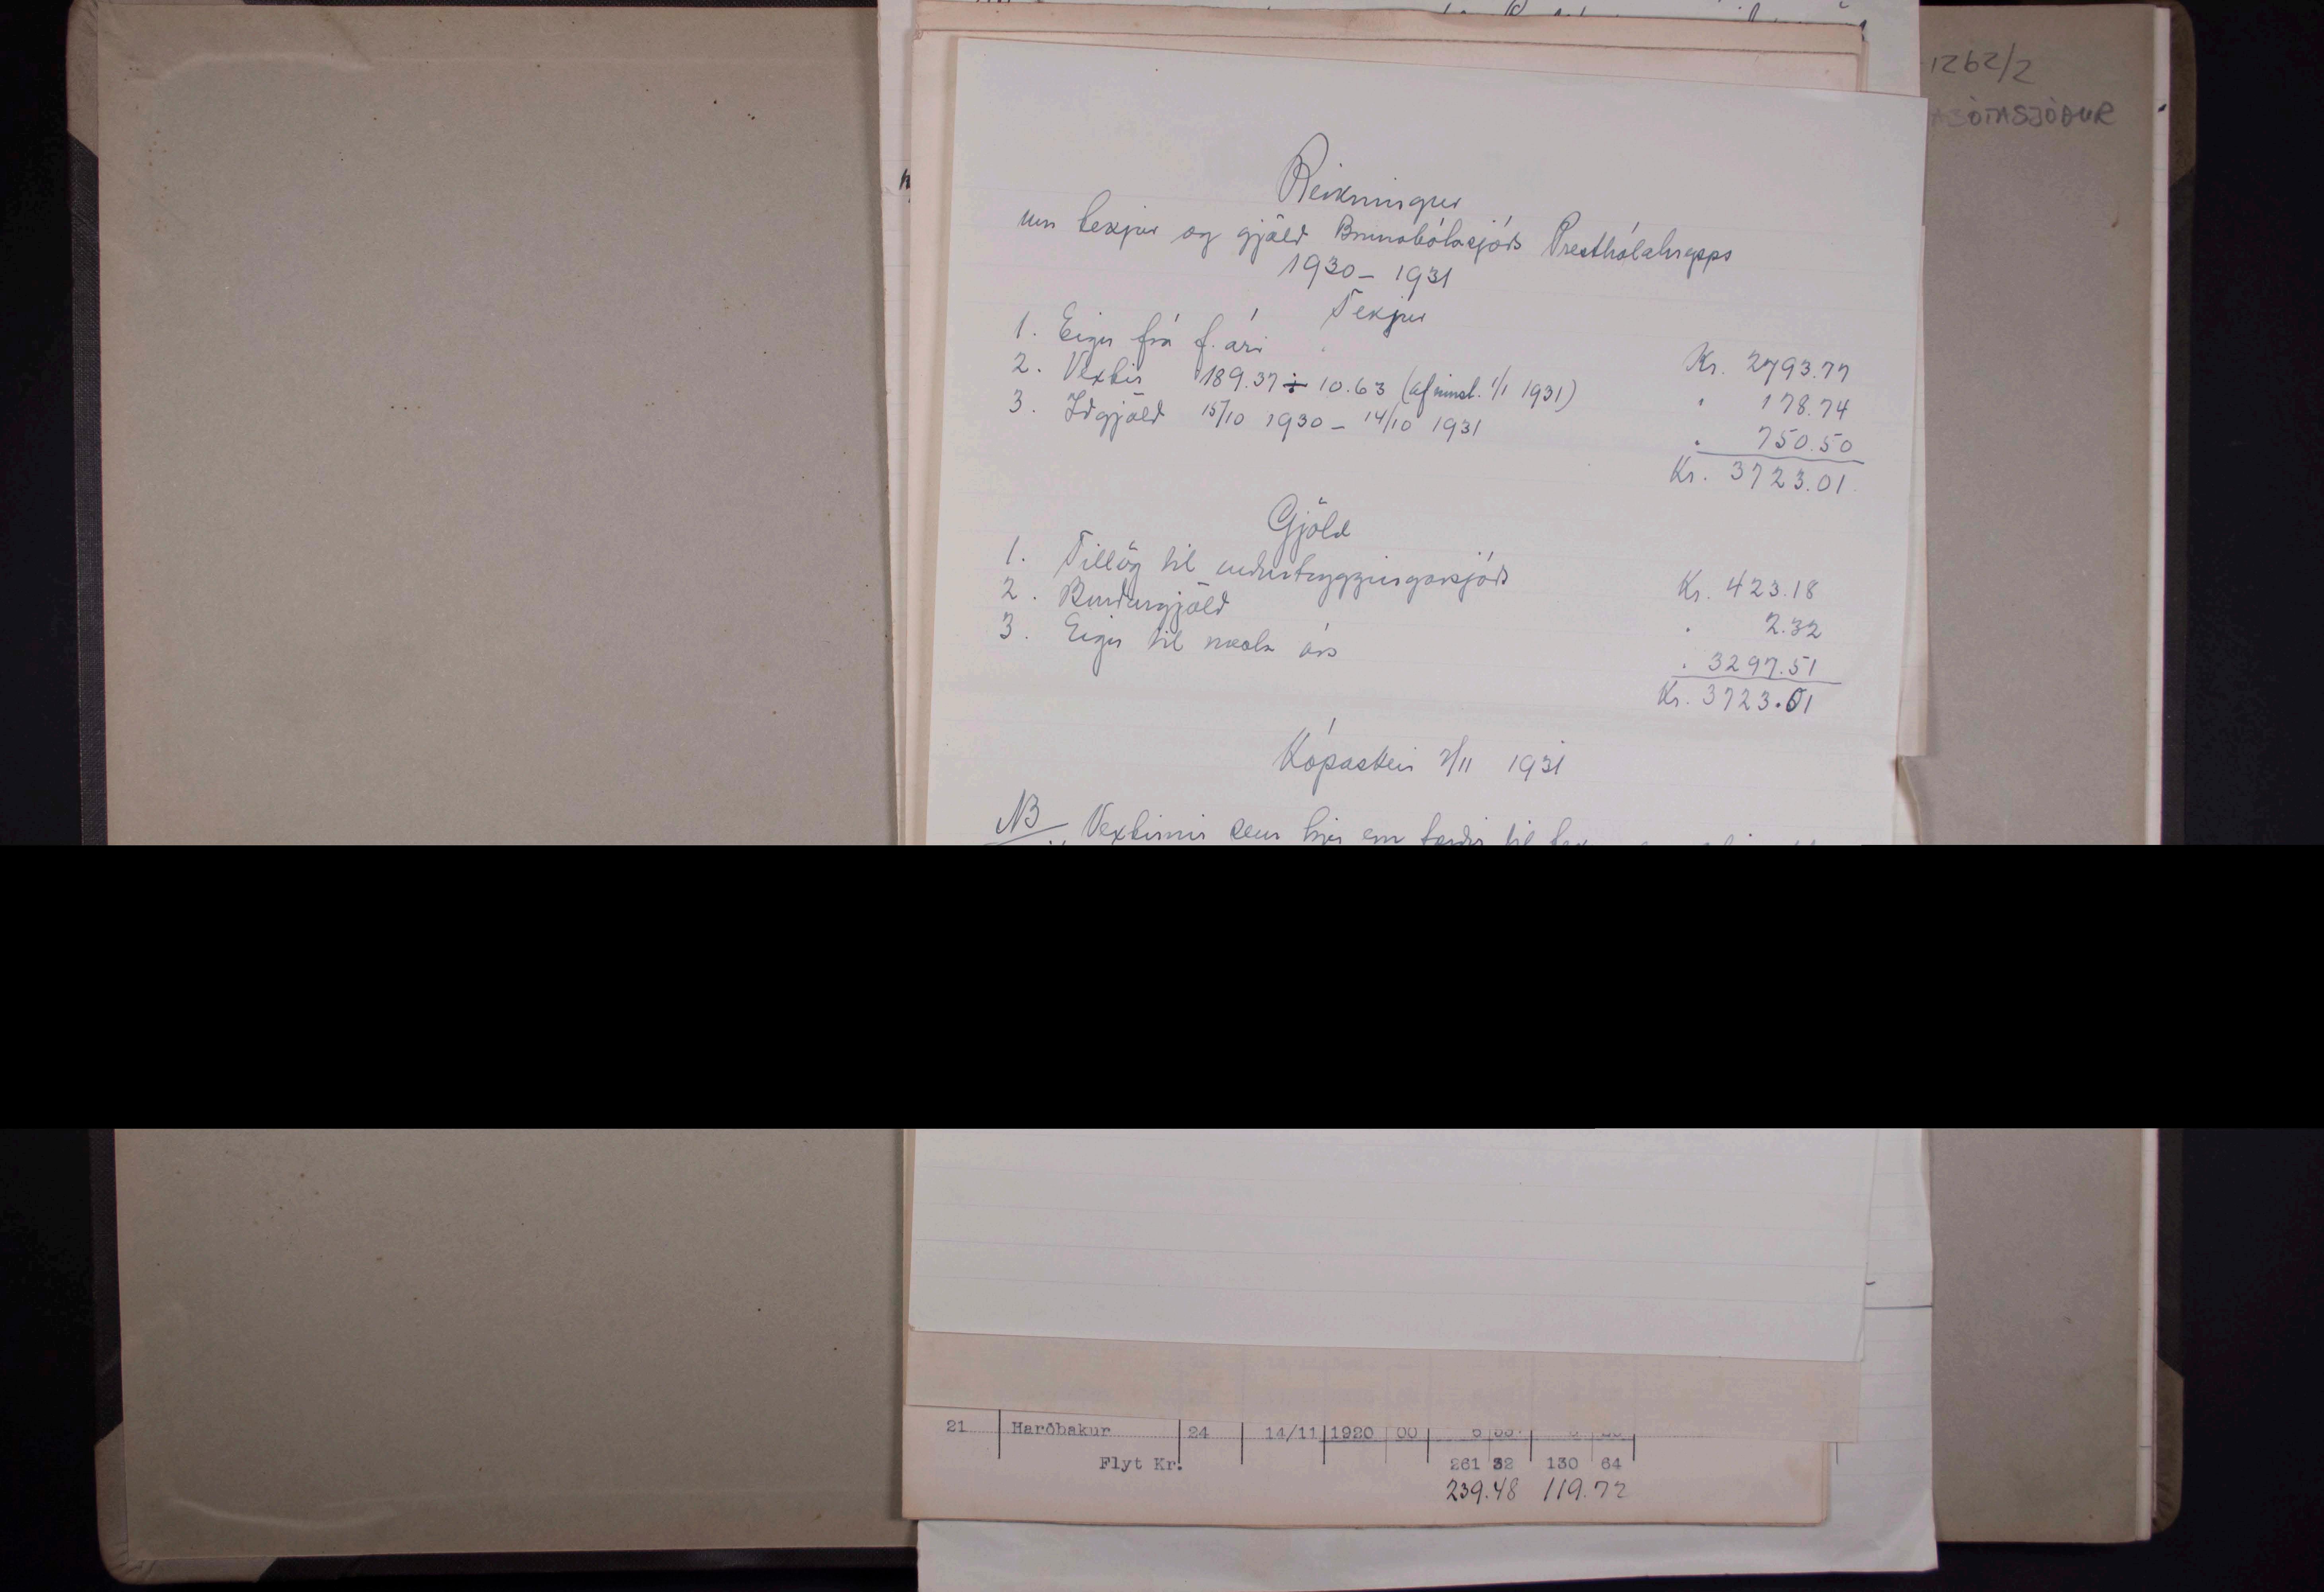 1262/2
SÓTASJÓÐUR
Reikningur
um tekjur og gjöld Brunabótasjóðs Presthólahrepps
1930 – 1931
Tekjur
1. Eign frá f. ári Kr. 2793.77
2. Vextir 189.37 ÷ 10.63 ( 1/1 1931) " 178.74
3. Iðgjöld 15/10 1930 – 14/10 1931 " 750.50
Kr. 3723.01
Gjöld
1. Tillög til endurtryggingarsjóðs Kr. 423.18
2. Burðargjöld " 2.32
3. Eign til næsta árs " 3297.51
Kr. 3723.01
Kópasker 2/11 1931
NB Vextirnir sem hjer eru færðir til
21 Harðbakur 24 14/11 1920 00
Flyt Kr. 261 32 130 64
239.48 119.72